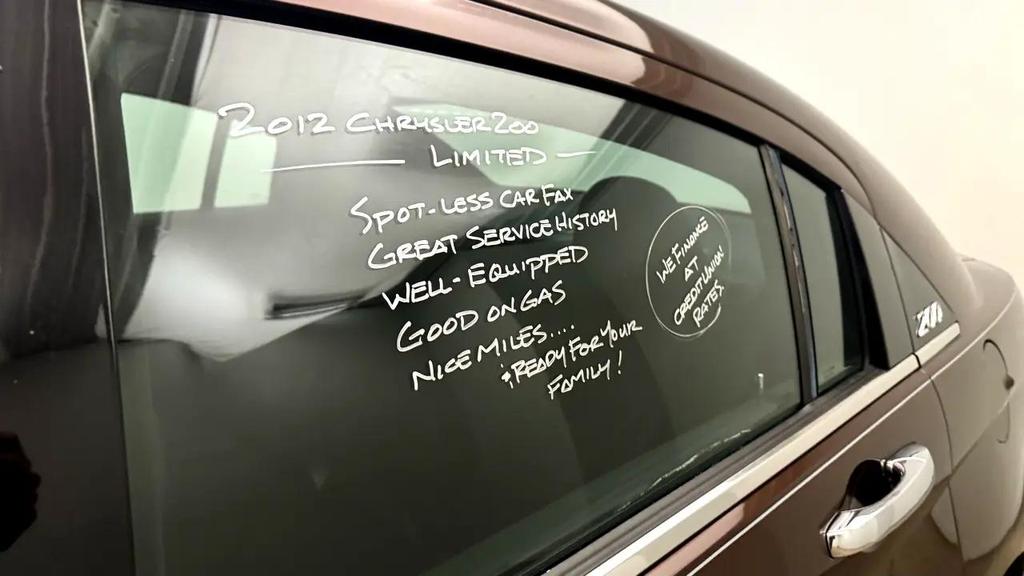 2012 CHRYSLER 200
LIMITED
SPOT-LESS CAR FAX
GREAT SERVICE HISTORY
WELL-EQUIPPED
GOOD ON GAS
NICE MILES....
& READY FOR YOUR
FAMILY!
WE FINANCE
AT
CREDIT UNION
RATES.
200